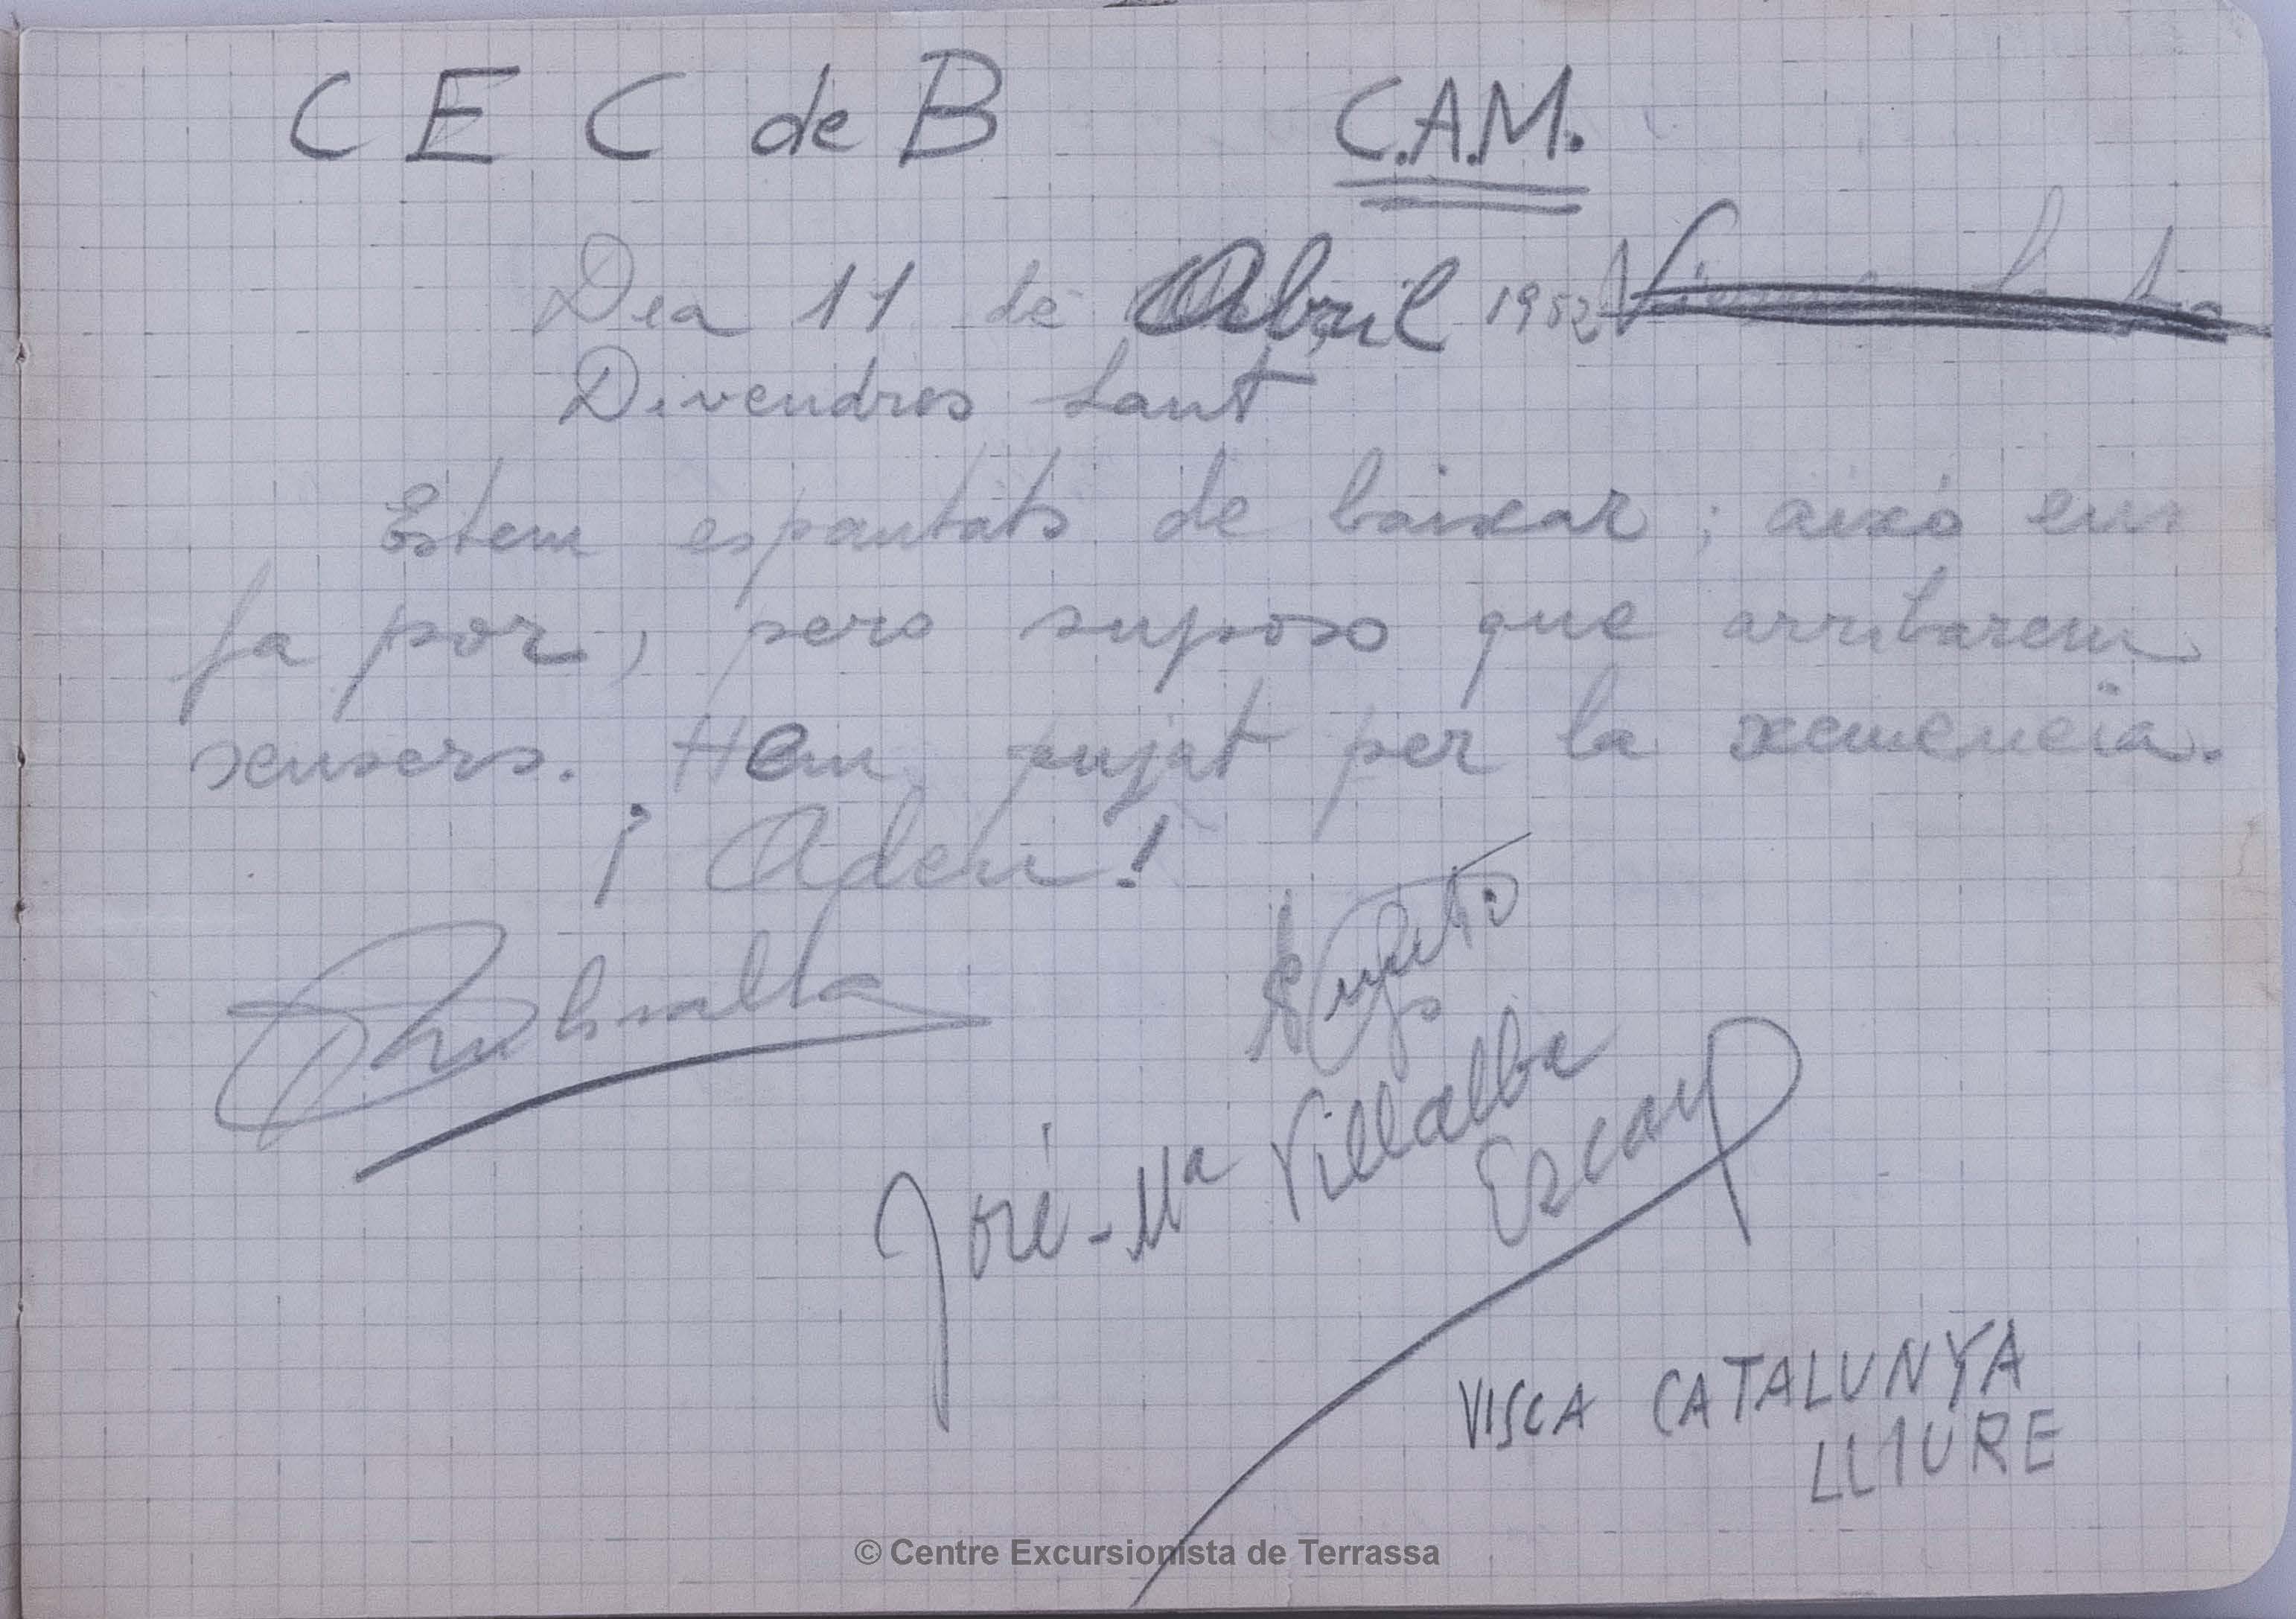 C E C de B C.A.M.
Dea 11 de Abril 1952
Divendres Sant
Estem espantats de baixar; aixó em
fa por, pero suposo que arribarem
sensers. Hem pujat per la xemeneia.
¡Adeu!
José-Mª Villalba
VISCA CATALUNYA
LLIURE
© Centre Excursionista de Terrassa